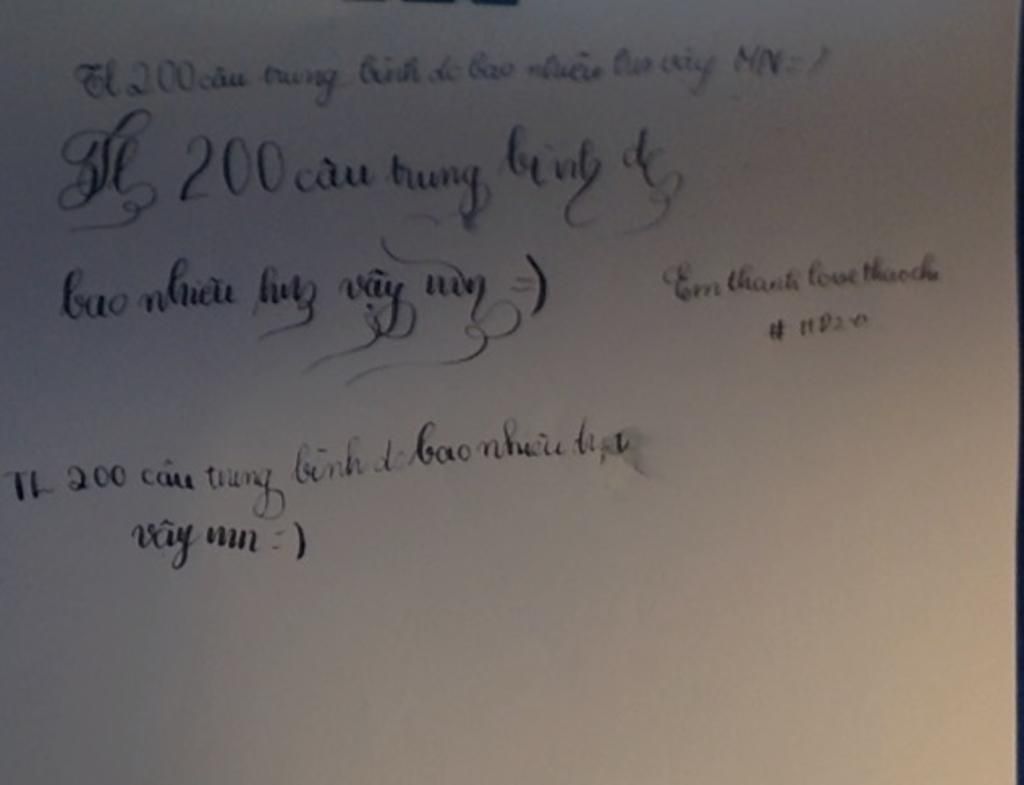 Tl 200 câu trung bình dc bao nhiêu lux vậy MN = )
Tl 200 câu trung bình dc
bao nhiêu lux vậy mn =)
Em thanh love thaochi
TL 200 câu trung bình dc bao nhiêu lux
vậy mn = )